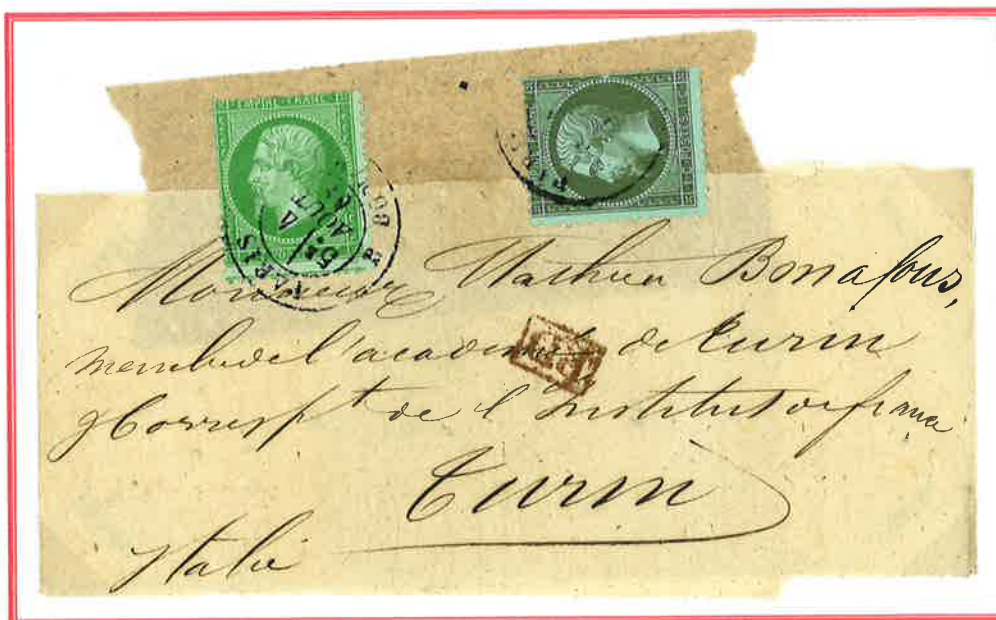 EMPIRE FRANC
PARIS
5E
AOUT
Monsieur Mathieu Bonafous,
membre de l'academie de turin
& Corresp^t de l'institut de france
Turin
Italie